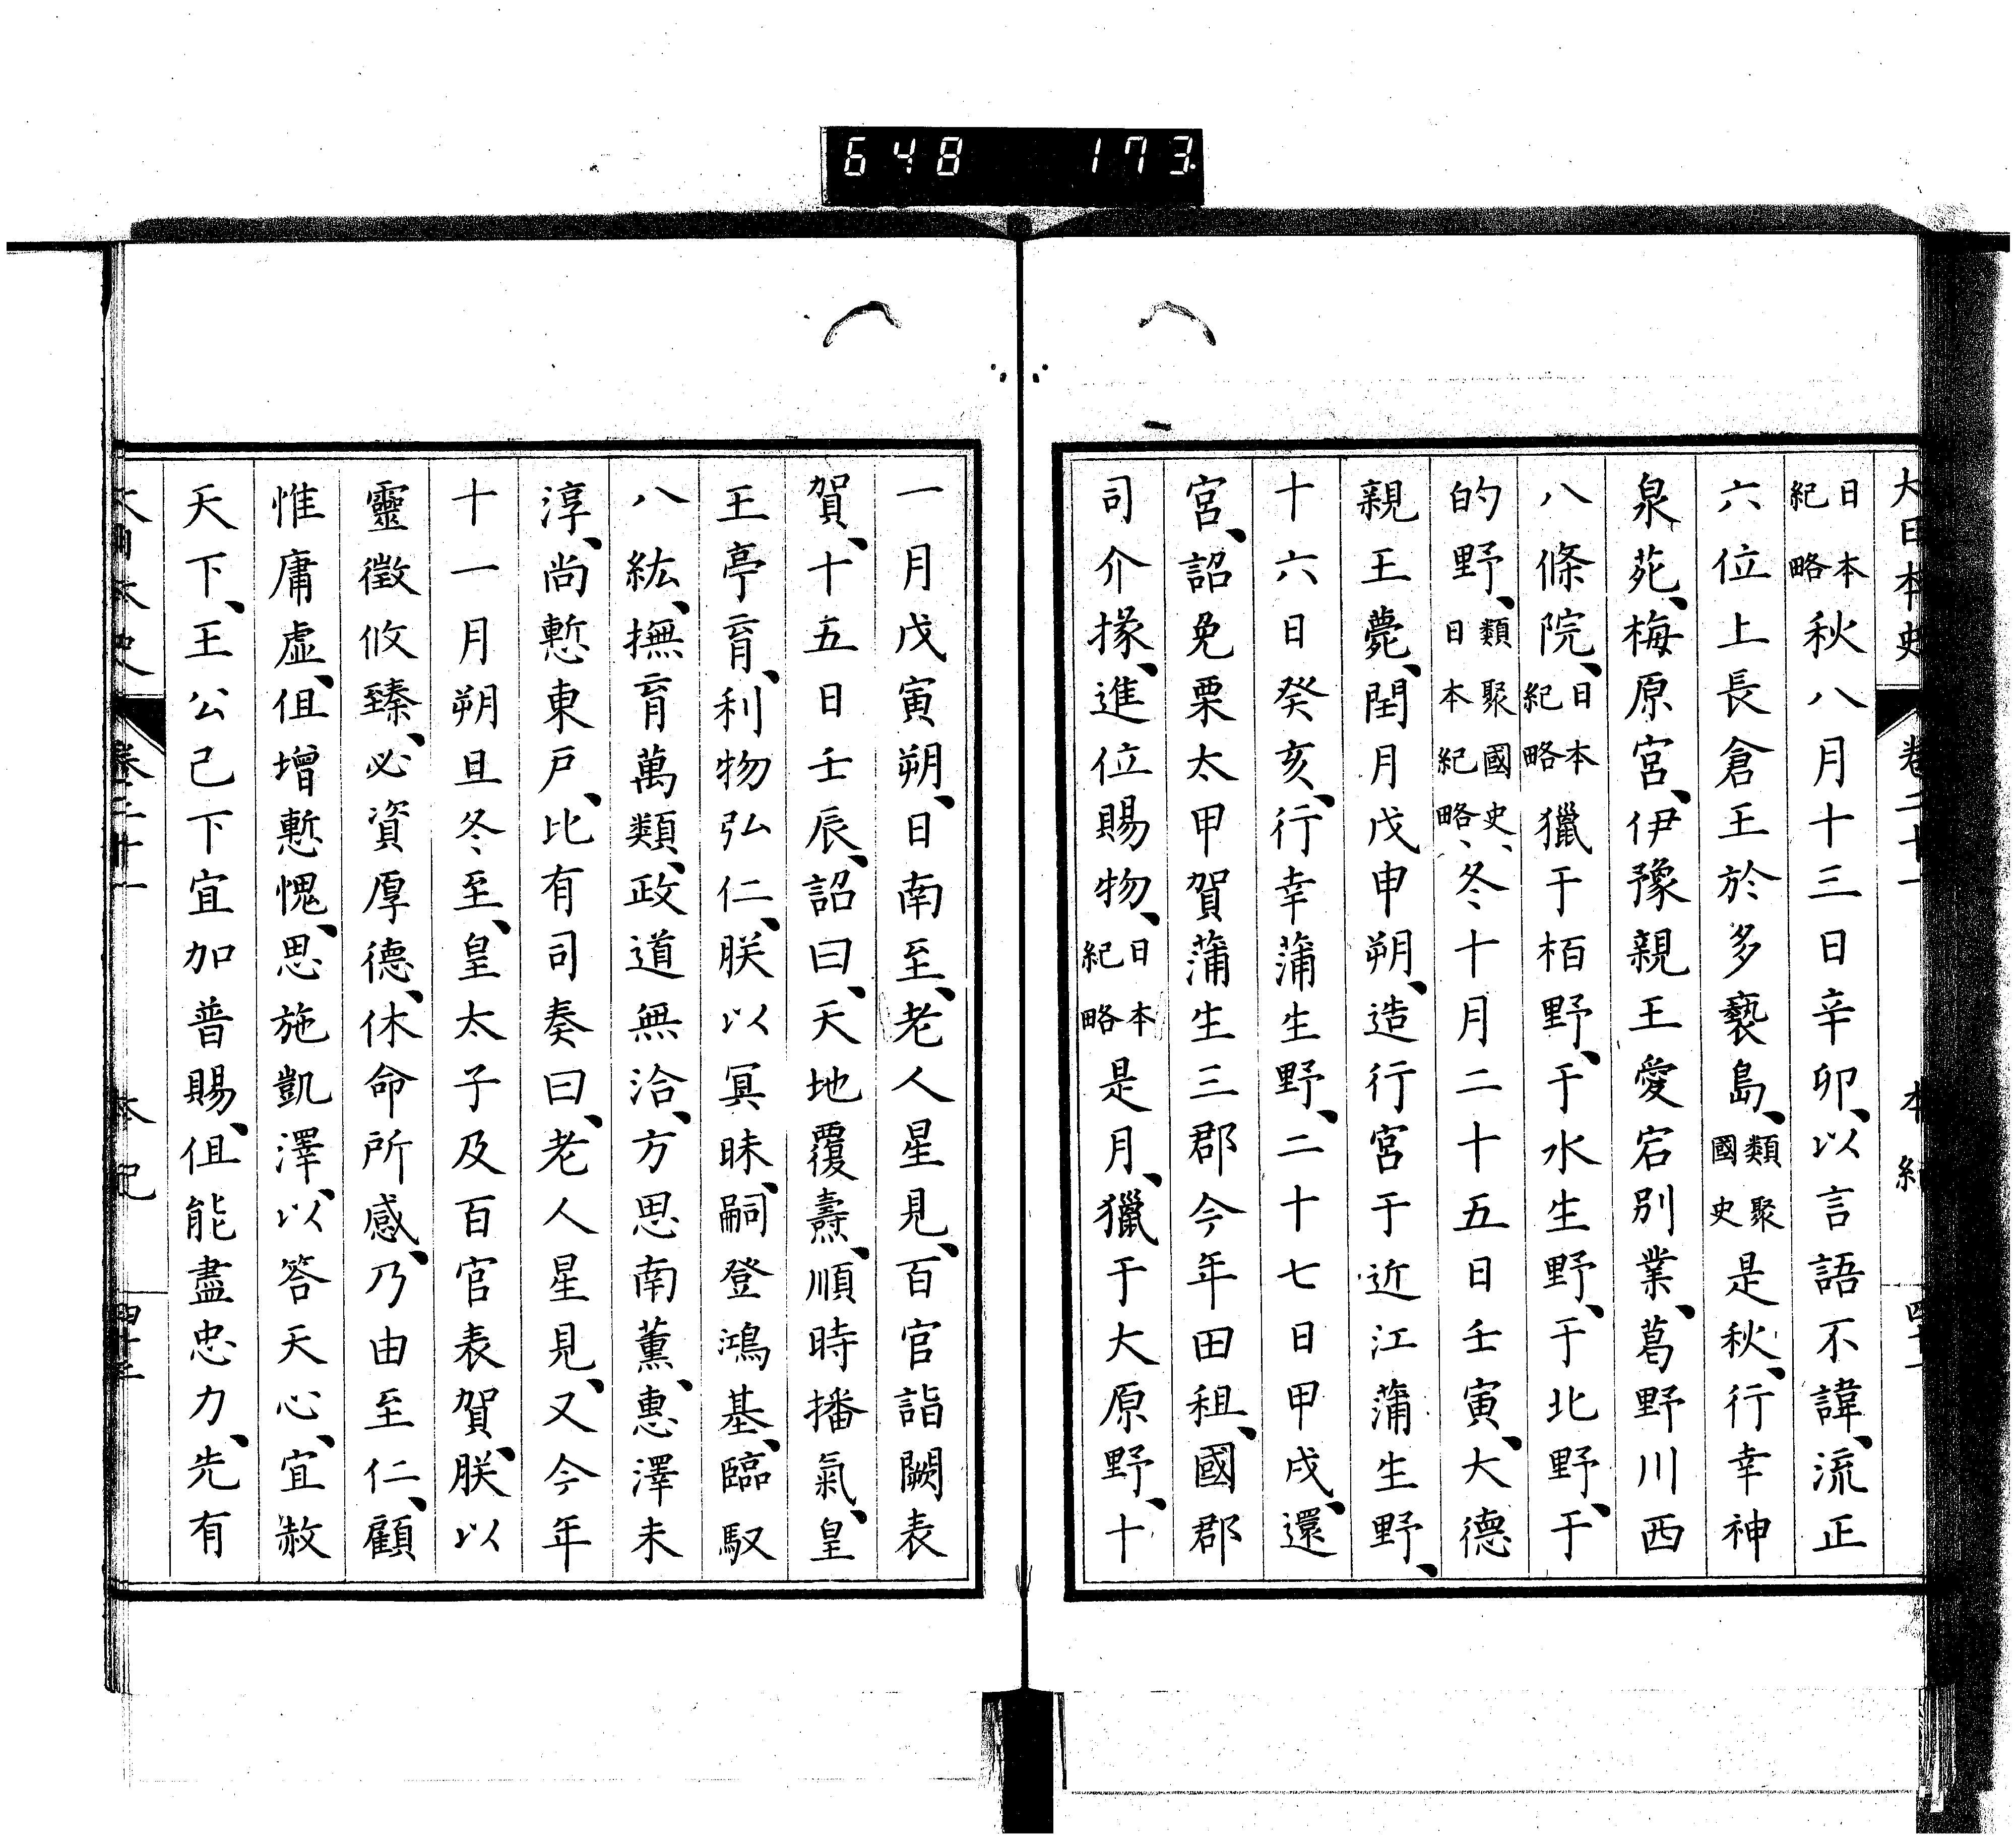 648 173
大日本史 卷二十一 本紀 四十一
日本紀略秋八月十三日辛卯、以言語不諱、流正
六位上長倉王於多褹島、類聚國史是秋、行幸神
泉苑、梅原宮、伊豫親王愛宕別業、葛野川西
八條院、日本紀略獵于栢野、于水生野、于北野、于
的野、類聚國史、日本紀略、冬十月二十五日壬寅、大德
親王薨、閏月戊申朔、造行宮于近江蒲生野、
十六日癸亥、行幸蒲生野、二十七日甲戌、還
宮、詔免栗太甲賀蒲生三郡今年田租、國郡
司介掾、進位賜物、日本紀略是月、獵于大原野、十
一月戊寅朔、日南至、老人星見、百官詣闕表
賀、十五日壬辰、詔曰、天地覆燾、順時播氣、皇
王亭育、利物弘仁、朕以冥昧、嗣登鴻基、臨馭
八紘、撫育萬類、政道無洽、方思南薰、惠澤未
淳、尚慙東戶、比有司奏曰、老人星見、又今年
十一月朔旦冬至、皇太子及百官表賀、朕以
靈徵攸臻、必資厚德、休命所感、乃由至仁、顧
惟庸虛、伹增慙愧、思施凱澤、以答天心、宜赦
天下、王公己下宜加普賜、伹能盡忠力、先有
大日本史 卷二十一 本紀